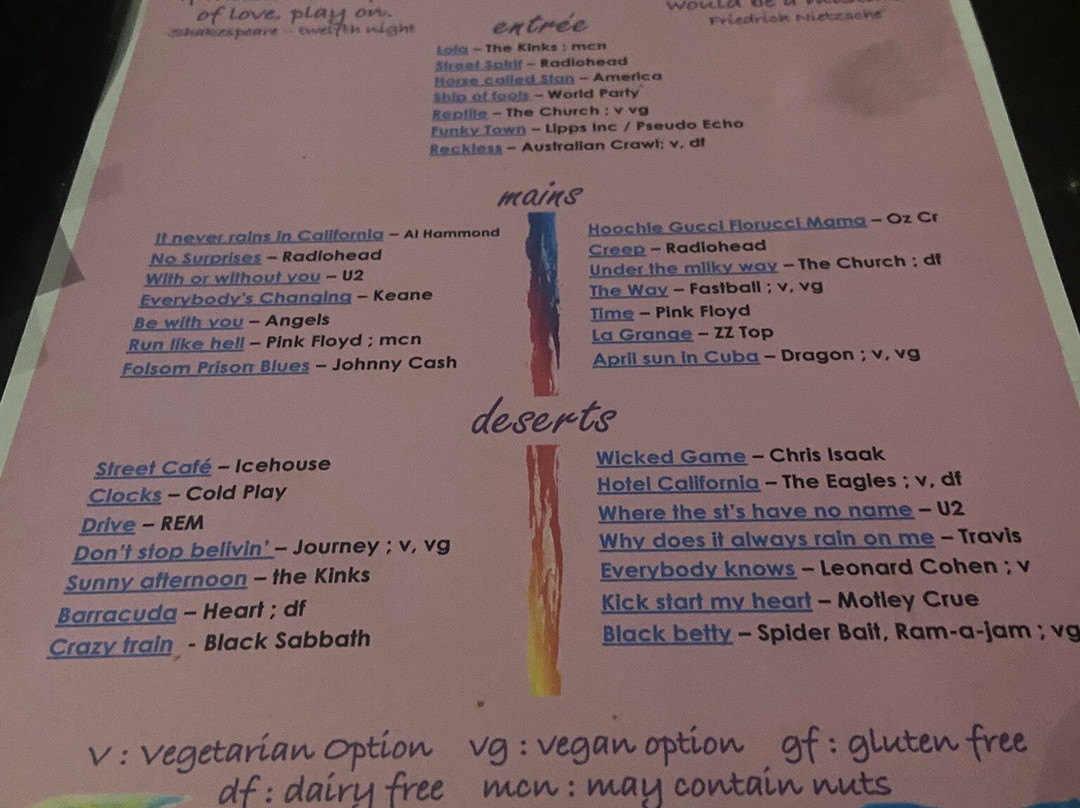 of love, play on.
Shakespeare - twelfth night
would be a
Friedrich Nietzsche
entrée
Lola – The Kinks ; mcn
Street Spirit – Radiohead
Horse called Stan – America
Ship of fools – World Party
Reptile – The Church ; v vg
Funky Town – Lipps Inc / Pseudo Echo
Reckless – Australian Crawl; v, df
mains
It never rains in California – Al Hammond
No Surprises – Radiohead
With or without you – U2
Everybody's Changing – Keane
Be with you – Angels
Run like hell – Pink Floyd ; mcn
Folsom Prison Blues – Johnny Cash
Hoochie Gucci Fiorucci Mama – Oz Cr
Creep – Radiohead
Under the milky way – The Church ; df
The Way – Fastball ; v, vg
Time – Pink Floyd
La Grange – ZZ Top
April sun in Cuba – Dragon ; v, vg
deserts
Street Café – Icehouse
Clocks – Cold Play
Drive – REM
Don't stop belivin' – Journey ; v, vg
Sunny afternoon – the Kinks
Barracuda – Heart ; df
Crazy train - Black Sabbath
Wicked Game – Chris Isaak
Hotel California – The Eagles ; v, df
Where the st's have no name – U2
Why does it always rain on me – Travis
Everybody knows – Leonard Cohen ; v
Kick start my heart – Motley Crue
Black betty – Spider Bait, Ram-a-jam ; vg
v : vegetarian option vg : vegan option gf : gluten free
df : dairy free mcn : may contain nuts